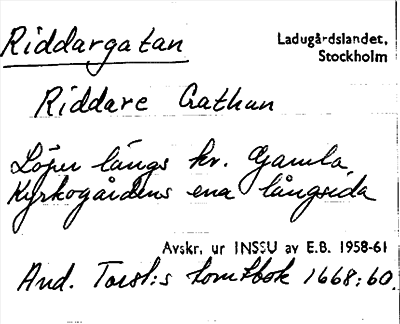 Riddargatan
Ladugårdslandet,
Stockholm
Riddare Gathun
Löper längs kv. Gamla
Kyrkogårdens ena långsida
Avskr. ur INSSU av E.B. 1958-61
And. Torst:s tomtbok 1668:60.